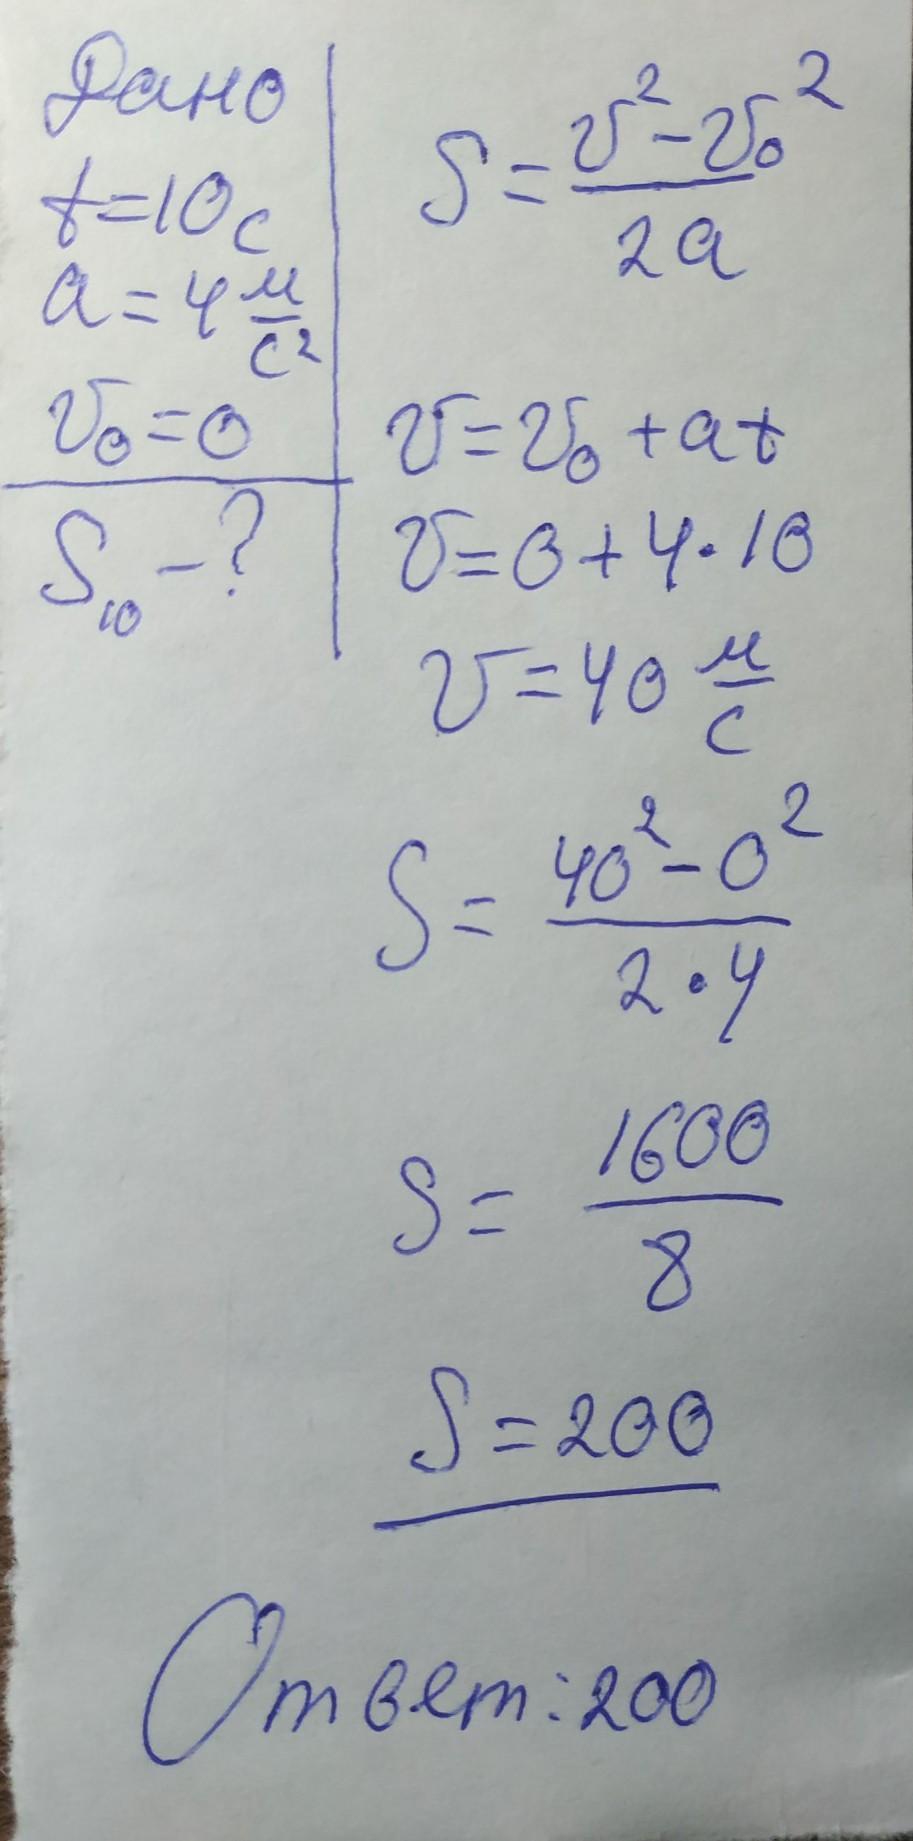 Дано
t=10с
a=4 м/с²
v₀=0
S₁₀-?
S=(v²-v₀²)/2a
v=v₀+at
v=0+4·10
v=40 м/с
S=(40²-0²)/2·4
S=1600/8
S=200
Ответ:200